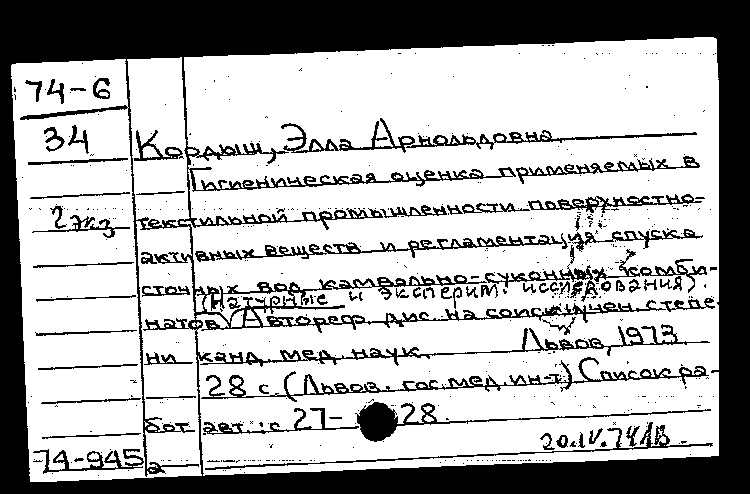 74-6
34 Кордыш, Элла Арнольдовна
Гигиеническая оценка применяемых в
2 экз текстильной промышленности поверхностно-
активных веществ и регламентация спуска
сточных вод камвольно-суконных комби-
(Натурные и эксперим. исследования).
натов Автореф. дис. на соиск. учен. степе-
ни канд. мед. наук. Львов, 1973
28 с. (Львов. гос. мед. ин-т) Список ра-
бот авт.: с 27-28.
20.IV.74
74-945